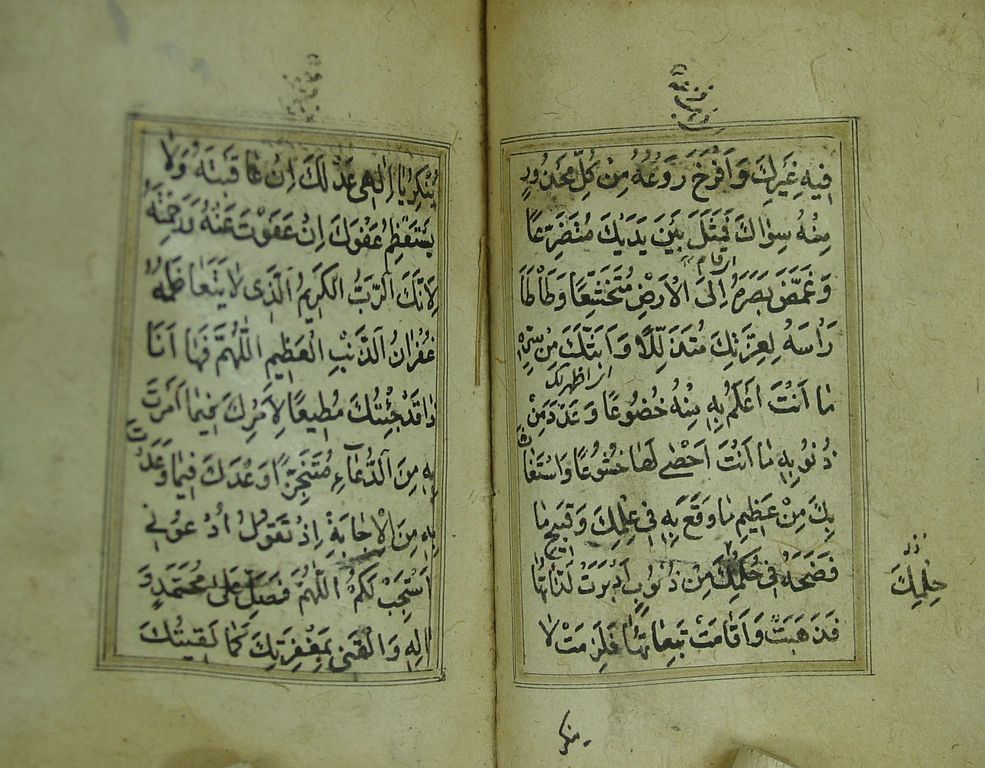 فِيهِ غَيْرِكَ وَاَفْرَخَ رَوْعُهُ مِنْ كُلِّ مَحْذُورٍ
مِنْهُ سِوَاكَ فَمَثَلَ بَيْنَ يَدَيْكَ مُتَضَرِّعًا
وَغَمَّضَ بَصَرَهُ اِلَى الْاَرْضِ مُتَخَشِّعًا وَطَأْطَأَ
رَأْسَهُ لِعِزَّتِكَ مُتَذَلِّلًا وَاَبَثَّكَ مِنْ سِرِّهِ
مَا اَنْتَ اَعْلَمُ بِهِ مِنْهُ خُضُوعًا وَعَدَّدَ مِنْ
ذُنُوبِهِ مَا اَنْتَ اَحْصٰى لَهَا خُشُوعًا وَاسْتَغَاثَ
بِكَ مِنْ عَظِيمِ مَا وَقَعَ بِهِ فِي عِلْمِكَ وَقَبِيحِ مَا
فَضَحَهُ فِي حُكْمِكَ مِنْ ذُنُوبٍ اَدْبَرَتْ لَذَّاتُهَا
فَذَهَبَتْ وَاَقَامَتْ تَبِعَاتُهَا فَلَزِمَتْ لَا
حِلْمِكَ
يُنْكِرُ يَا اِلٰهِي عَدْلَكَ اِنْ عَاقَبْتَهُ وَلَا
يَسْتَعْظِمُ عَفْوَكَ اِنْ عَفَوْتَ عَنْهُ وَرَحِمْتَهُ
لِاَنَّكَ الرَّبُّ الْكَرِيمُ الَّذِي لَا يَتَعَاظَمُهُ
غُفْرَانُ الذَّنْبِ الْعَظِيمِ اَللّٰهُمَّ فَهَا اَنَا
ذَا قَدْ جِئْتُكَ مُطِيعًا لِاَمْرِكَ فِيمَا اَمَرْتَ
بِهِ مِنَ الدُّعَاءِ مُتَنَجِّزًا وَعْدَكَ فِيمَا وَعَدْتَ
بِهِ مِنَ الْاِجَابَةِ اِذْ تَقُولُ اُدْعُونِي
اَسْتَجِبْ لَكُمْ اَللّٰهُمَّ فَصَلِّ عَلٰى مُحَمَّدٍ وَ
اٰلِهِ وَالْقَنِي بِمَغْفِرَتِكَ كَمَا لَقِيتُكَ